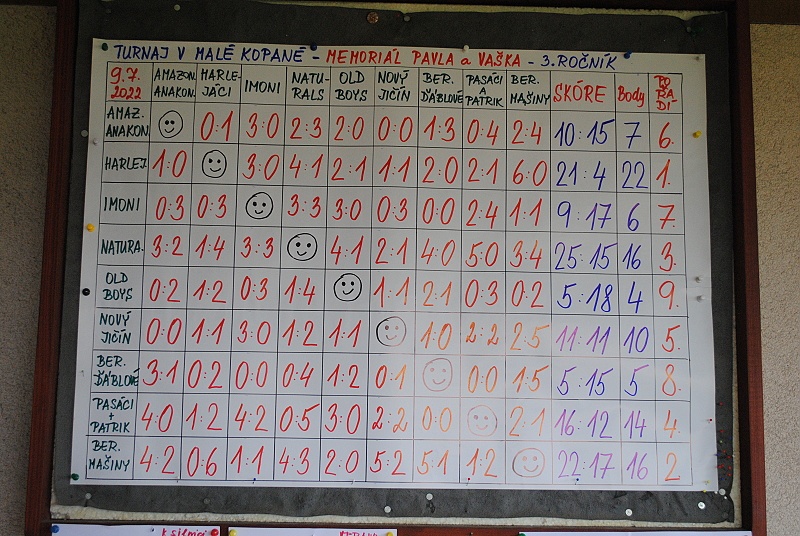 TURNAJ V MALÉ KOPANÉ - MEMORIÁL PAVLA a VAŠKA - 3. ROČNÍK
9.7. 2022 AMAZON. ANAKON. HARLE-JÁCI IMONI NATU-RALS OLD BOYS NOVÝ JIČÍN BER. ĎÁBLOVÉ PASÁCI A PATRIK BER. MAŠINY SKÓRE Body POŘADÍ-
AMAZ. ANAKON. 0:1 3:0 2:3 2:0 0:0 1:3 0:4 2:4 10:15 7 6.
HARLEJ. 1:0 3:0 4:1 2:1 1:1 2:0 2:1 6:0 21:4 22 1.
IMONI 0:3 0:3 3:3 3:0 0:3 0:0 2:4 1:1 9:17 6 7.
NATURA. 3:2 1:4 3:3 4:1 2:1 4:0 5:0 3:4 25:15 16 3.
OLD BOYS 0:2 1:2 0:3 1:4 1:1 2:1 0:3 0:2 5:18 4 9.
NOVÝ JIČÍN 0:0 1:1 3:0 1:2 1:1 1:0 2:2 2:5 11:11 10 5.
BER. ĎÁBLOVÉ 3:1 0:2 0:0 0:4 1:2 0:1 0:0 1:5 5:15 5 8.
PASÁCI + PATRIK 4:0 1:2 4:2 0:5 3:0 2:2 0:0 2:1 16:12 14 4.
BER. MAŠINY 4:2 0:6 1:1 4:3 2:0 5:2 5:1 1:2 22:17 16 2